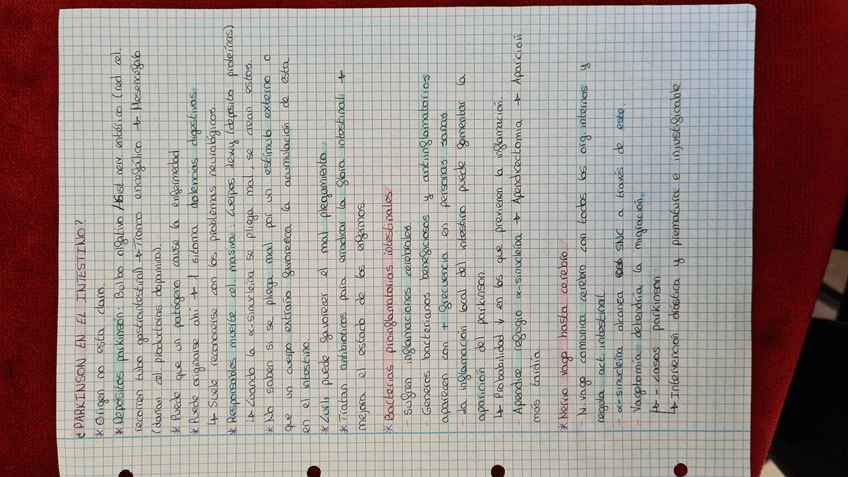 ¿PARKINSON EN EL INTESTINO?
* Origen no esta claro.
* Depósitos parkinson: Bulbo olfativo / Sist nerv. entérico (red cel.
recorren tubo gastrointestinal) → Tronco encefálico → Mesencéfalo
(dañan cel productoras dopamina).
* Puede que un patógeno cause la enfermedad
* Puede originarse ahí → 1 síntoma dolencias digestivas.
↳ Suele reconocerse con los problemas neurológicos
* Responsables muerte cel masiva: Cuerpos Lewy (depósito proteínas)
↳ Cuando la α-sinucleína se pliega mal, se crean estos.
* No saben si se pliega mal por un estímulo externo o
que un cuerpo extraño favorezca la acumulación de esta
en el intestino.
* Curli puede favorecer el mal plegamiento.
* Tratan antibioticos para erradicar la flora intestinal →
mejora el estado de los enfermos.
* Bacterias proinflamatorias intestinales.
- Sufren inflamaciones cerebrales.
- Géneros bacterianos beneficiosos y antiinflamatorios
aparecen con + frecuencia en personas sanas
- La inflamacion local del intestino puede fomentar la
aparicion del parkinson.
↳ Probabilidad ↓ en los que previenen la inflamación.
- Apendice refugio α-sinucleína → Apendicectomia → Aparicion
más tardía
* Nervio vago hasta cerebro.
- N vago comunica cerebro con todos los org. internos y
regula act. intestinal.
- α-sinucleína alcanza SNC a través de este.
- Vagotomia detendría la migracion.
↳ - casos parkinson
↳ Intervención drástica y prematura e injustificable